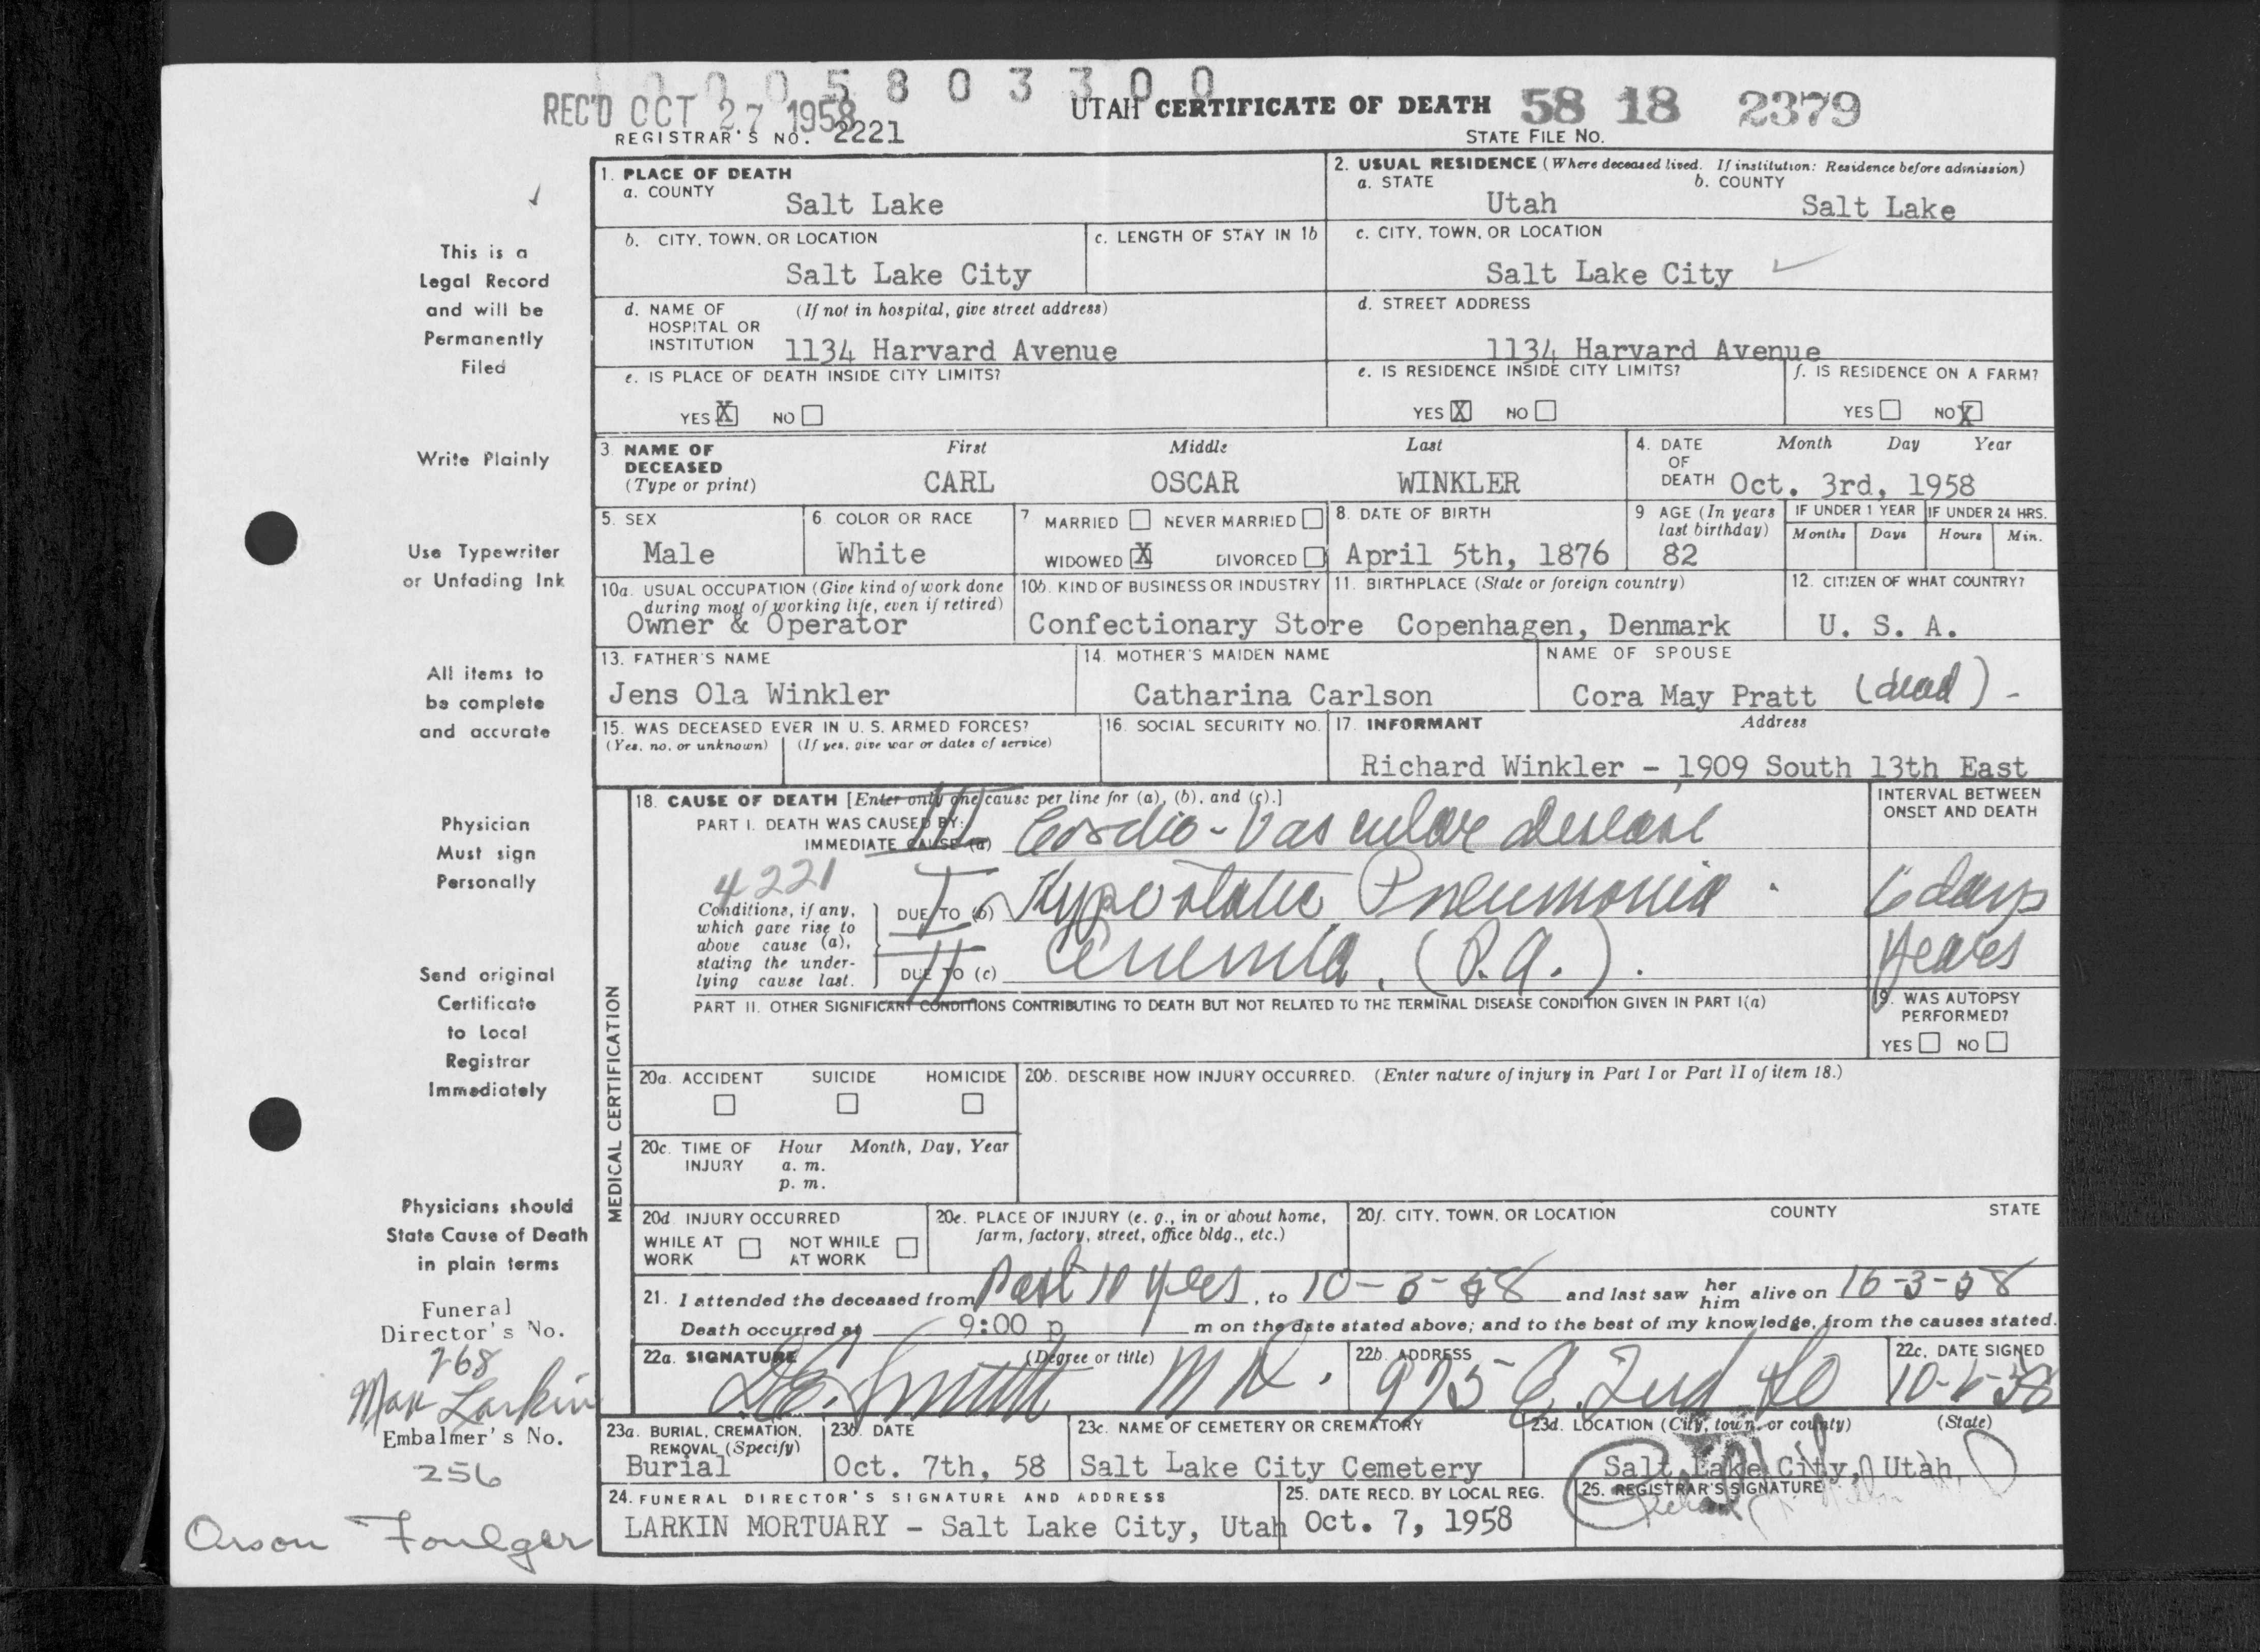 0 0 0 5 8 0 3 3 0 0
REC'D OCT 27 1958
UTAH CERTIFICATE OF DEATH 58 18 2379
REGISTRAR'S NO. 2221
STATE FILE NO.
This is a
Legal Record
and will be
Permanently
Filed
Write Plainly
Use Typewriter
or Unfading Ink
All items to
be complete
and accurate
Physician
Must sign
Personally
Send original
Certificate
to Local
Registrar
Immediately
Physicians should
State Cause of Death
in plain terms
Funeral
Director's No.
268
Max Larkin
Embalmer's No.
256
Orson Foulger
1. PLACE OF DEATH
a. COUNTY
Salt Lake
2. USUAL RESIDENCE (Where deceased lived. If institution: Residence before admission)
a. STATE
Utah
b. COUNTY
Salt Lake
b. CITY, TOWN, OR LOCATION
Salt Lake City
c. LENGTH OF STAY IN 1b
c. CITY, TOWN, OR LOCATION
Salt Lake City
d. NAME OF (If not in hospital, give street address)
HOSPITAL OR
INSTITUTION 1134 Harvard Avenue
d. STREET ADDRESS
1134 Harvard Avenue
e. IS PLACE OF DEATH INSIDE CITY LIMITS?
YES X NO
e. IS RESIDENCE INSIDE CITY LIMITS?
YES X NO
f. IS RESIDENCE ON A FARM?
YES NO X
3. NAME OF
DECEASED
(Type or print)
First Middle Last
CARL OSCAR WINKLER
4. DATE
OF
DEATH
Month Day Year
Oct. 3rd, 1958
5. SEX
Male
6. COLOR OR RACE
White
7 MARRIED NEVER MARRIED
WIDOWED X DIVORCED
8. DATE OF BIRTH
April 5th, 1876
9 AGE (In years
last birthday)
82
IF UNDER 1 YEAR
Months Days
IF UNDER 24 HRS.
Hours Min.
10a. USUAL OCCUPATION (Give kind of work done
during most of working life, even if retired)
Owner & Operator
10b. KIND OF BUSINESS OR INDUSTRY
Confectionary Store
11. BIRTHPLACE (State or foreign country)
Copenhagen, Denmark
12. CITIZEN OF WHAT COUNTRY?
U. S. A.
13. FATHER'S NAME
Jens Ola Winkler
14. MOTHER'S MAIDEN NAME
Catharina Carlson
NAME OF SPOUSE
Cora May Pratt (dead) -
15. WAS DECEASED EVER IN U. S. ARMED FORCES?
(Yes, no, or unknown) (If yes, give war or dates of service)
16. SOCIAL SECURITY NO.
17. INFORMANT Address
Richard Winkler - 1909 South 13th East
MEDICAL CERTIFICATION
18. CAUSE OF DEATH [Enter only one cause per line for (a), (b), and (c).]
PART I. DEATH WAS CAUSED BY:
IMMEDIATE CAUSE (a) III Cardio-Vascular disease
INTERVAL BETWEEN
ONSET AND DEATH
4221
Conditions, if any,
which gave rise to
above cause (a),
stating the under-
lying cause last.
DUE TO (b) I Hypostatic Pneumonia. 6 days
DUE TO (c) II Anemia. (P.A.). Years
PART II. OTHER SIGNIFICANT CONDITIONS CONTRIBUTING TO DEATH BUT NOT RELATED TO THE TERMINAL DISEASE CONDITION GIVEN IN PART I(a)
19. WAS AUTOPSY
PERFORMED?
YES NO
20a. ACCIDENT SUICIDE HOMICIDE
20b. DESCRIBE HOW INJURY OCCURRED. (Enter nature of injury in Part I or Part II of item 18.)
20c. TIME OF Hour Month, Day, Year
INJURY a. m.
p. m.
20d. INJURY OCCURRED
WHILE AT NOT WHILE
WORK AT WORK
20e. PLACE OF INJURY (e. g., in or about home,
farm, factory, street, office bldg., etc.)
20f. CITY, TOWN, OR LOCATION COUNTY STATE
21. I attended the deceased from Past 10 yrs, to 10-3-58 and last saw her
him alive on 10-3-58
Death occurred at 9:00 p m on the date stated above; and to the best of my knowledge, from the causes stated.
22a. SIGNATURE (Degree or title)
Smith M D.
22b. ADDRESS
975 E. 2nd So
22c. DATE SIGNED
10-6-58
23a. BURIAL, CREMATION,
REMOVAL (Specify)
Burial
23b. DATE
Oct. 7th, 58
23c. NAME OF CEMETERY OR CREMATORY
Salt Lake City Cemetery
23d. LOCATION (City, town, or county) (State)
Salt Lake City, Utah
24. FUNERAL DIRECTOR'S SIGNATURE AND ADDRESS
LARKIN MORTUARY - Salt Lake City, Utah
25. DATE RECD. BY LOCAL REG.
Oct. 7, 1958
25. REGISTRAR'S SIGNATURE